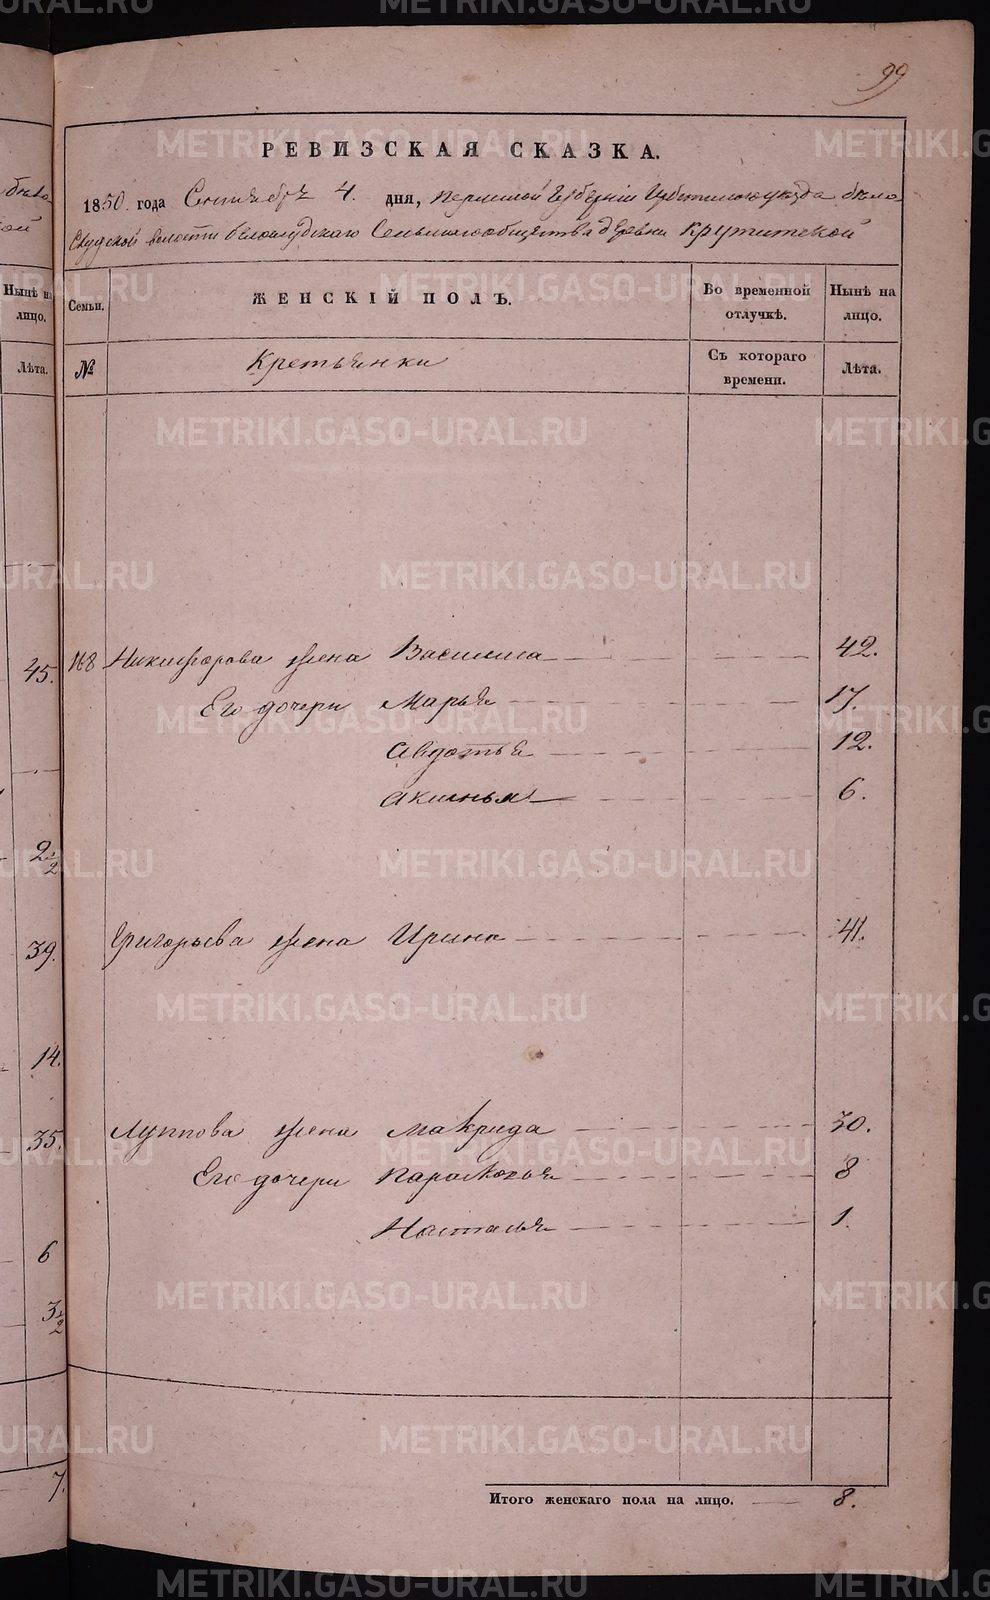 99
РЕВИЗСКАЯ СКАЗКА.
1850 года Сентября 4. дня, Пермской Губерніи Ирбитскаго уезда Бело
Слудской волости Белослудскаго Сельскаго общества деревни Крутитской
Нынѣ на лицо.
Лѣта.
Семьи.
ЖЕНСКІЙ ПОЛЪ.
Во временной отлучкѣ.
Нынѣ на лицо.
№
Кретьянки
Съ котораго времени.
Лѣта.
45.
168 Никифорова жена Василиса 42.
Его дочери Марья 17.
Авдотья 12.
Акинья 6.
2 1/2
39.
Григорьева жена Ирина 41.
14.
35.
Луппова жена Макрида 30.
Его дочери Парасковья 8
Насталья 1.
6
3 1/2
7.
Итого женскаго пола на лицо. 8.
METRIKI.GASO-URAL.RU